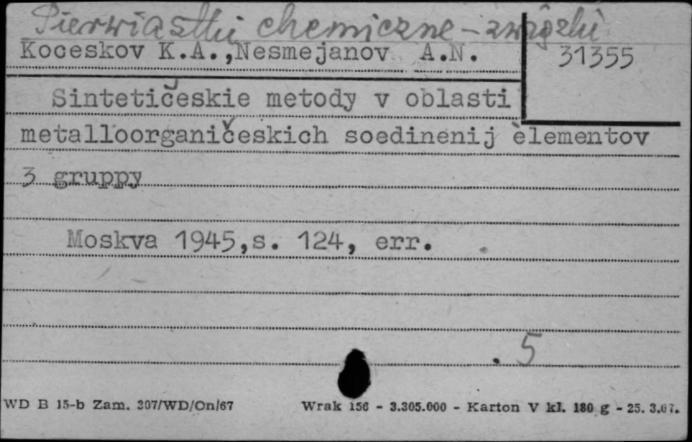 Pierwiastki chemiczne - związki
Koceskov K.A.,Nesmejanov A.N.
31355
Sintetičeskie metody v oblasti
metalloorganičeskich soedinenij èlementov
3 gruppy
Moskva 1945,s. 124, err.
. 5
WD B 15-b Zam. 207/WD/On/67 Wrak 156 - 3.305.000 - Karton V kl. 180 g - 25. 3.67.